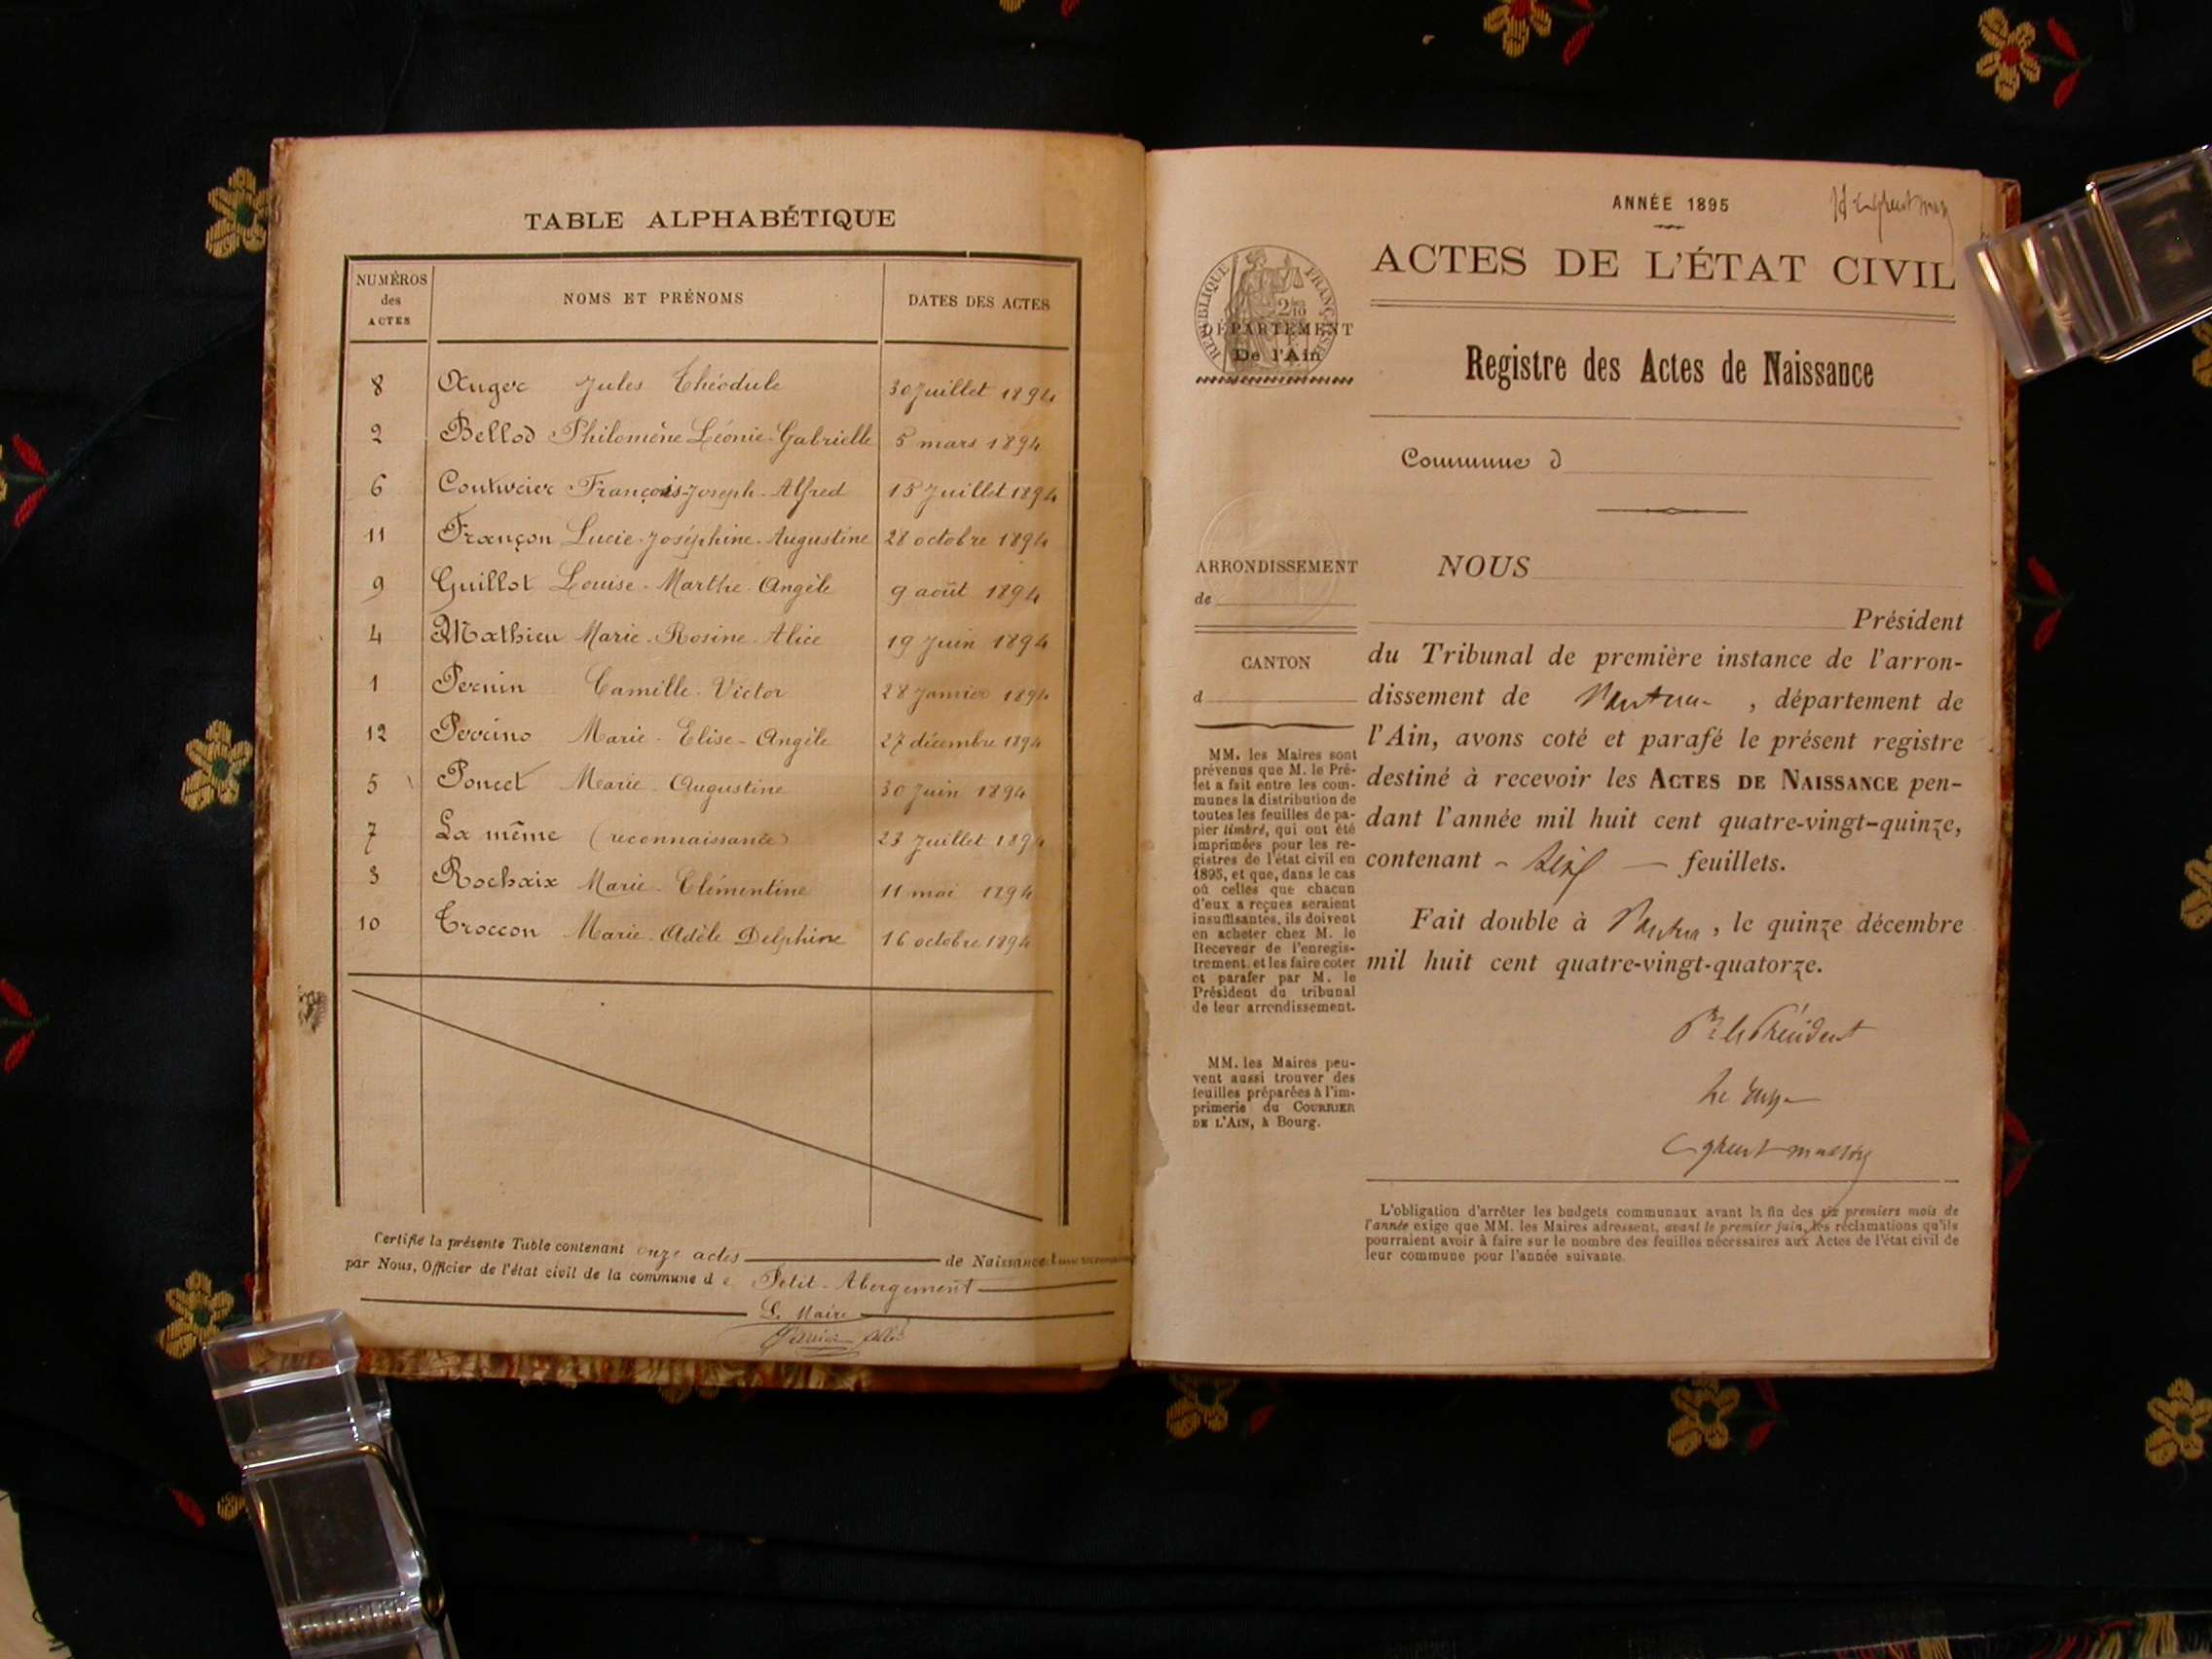 TABLE ALPHABÉTIQUE
NUMÉROS des ACTES
NOMS ET PRÉNOMS
DATES DES ACTES
8 Auger Jules Théodule 30 Juillet 1894
2 Bellod Philomène Léonie-Gabrielle 5 mars 1894
6 Couturier François-Joseph-Alfred 15 Juillet 1894
11 Françon Lucie-Joséphine-Augustine 28 octobre 1894
9 Guillot Louise-Marthe-Angèle 9 août 1894
4 Mathieu Marie-Rosine-Alice 19 Juin 1894
1 Pernin Camille-Victor 28 Janvier 1894
12 Marie-Elise-Angèle 27 décembre 1894
5 Poncet Marie-Augustine 30 Juin 1894
7 La même (reconnaissance) 23 Juillet 1894
3 Rochaix Marie-Clémentine 11 mai 1894
10 Troccon Marie-Adèle Delphine 16 octobre 1894
Certifié la présente Table contenant onze actes de Naissance
par Nous, Officier de l'état civil de la commune d e Petit-Abergement
Le Maire
ANNÉE 1895
ACTES DE L'ÉTAT CIVIL
RÉPUBLIQUE FRANÇAISE
DÉPARTEMENT
De l'Ain
Registre des Actes de Naissance
Commune d
ARRONDISSEMENT
de
CANTON
d
MM. les Maires sont
prévenus que M. le Pré-
fet a fait entre les com-
munes la distribution de
toutes les feuilles de pa-
pier timbré, qui ont été
imprimées pour les re-
gistres de l'état civil en
1895, et que, dans le cas
où celles que chacun
d'eux a reçues seraient
insuffisantes, ils doivent
en acheter chez M. le
Receveur de l'enregis-
trement, et les faire coter
et parafer par M. le
Président du tribunal
de leur arrondissement.
MM. les Maires peu-
vent aussi trouver des
feuilles préparées à l'im-
primerie du COURRIER
DE L'AIN, à Bourg.
NOUS
Président
du Tribunal de première instance de l'arron-
dissement de Nantua , département de
l'Ain, avons coté et parafé le présent registre
destiné à recevoir les ACTES DE NAISSANCE pen-
dant l'année mil huit cent quatre-vingt-quinze,
contenant feuillets.
Fait double à Nantua, le quinze décembre
mil huit cent quatre-vingt-quatorze.
Pr le Président
Le Juge
L'obligation d'arrêter les budgets communaux avant la fin des six premiers mois de
l'année exige que MM. les Maires adressent, avant le premier juin, les réclamations qu'ils
pourraient avoir à faire sur le nombre des feuilles nécessaires aux Actes de l'état civil de
leur commune pour l'année suivante.